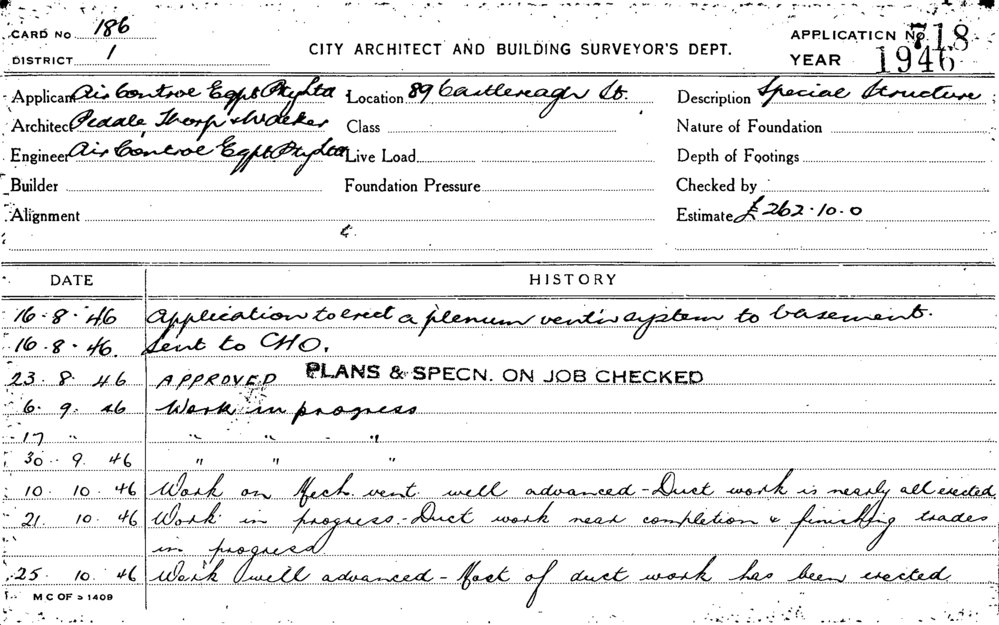 CARD No 186
DISTRICT 1
CITY ARCHITECT AND BUILDING SURVEYOR'S DEPT.
APPLICATION No. 718
YEAR 1946
Applicant Air Control Eqpt Pty Ltd Location 89 Castlereagh St. Description Special Structure
Architect Peddle, Thorp & Walker Class Nature of Foundation
Engineer Air Control Eqpt Pty Ltd Live Load Depth of Footings
Builder Foundation Pressure Checked by
Alignment Estimate £262.10.0
DATE HISTORY
16.8.46 Application to erect a plenum vent'n system to basement.
16.8.46. Sent to CHO.
23.8.46 APPROVED PLANS & SPECN. ON JOB CHECKED
6.9.46 Work in progress
17 " " " - "
30.9.46 " " "
10.10.46 Work on Mech. vent. well advanced - Duct work is nearly all erected
21.10.46 Work in progress - Duct work near completion & finishing trades
in progress
25.10.46 Work well advanced - Most of duct work has been erected
M C OF S 1409